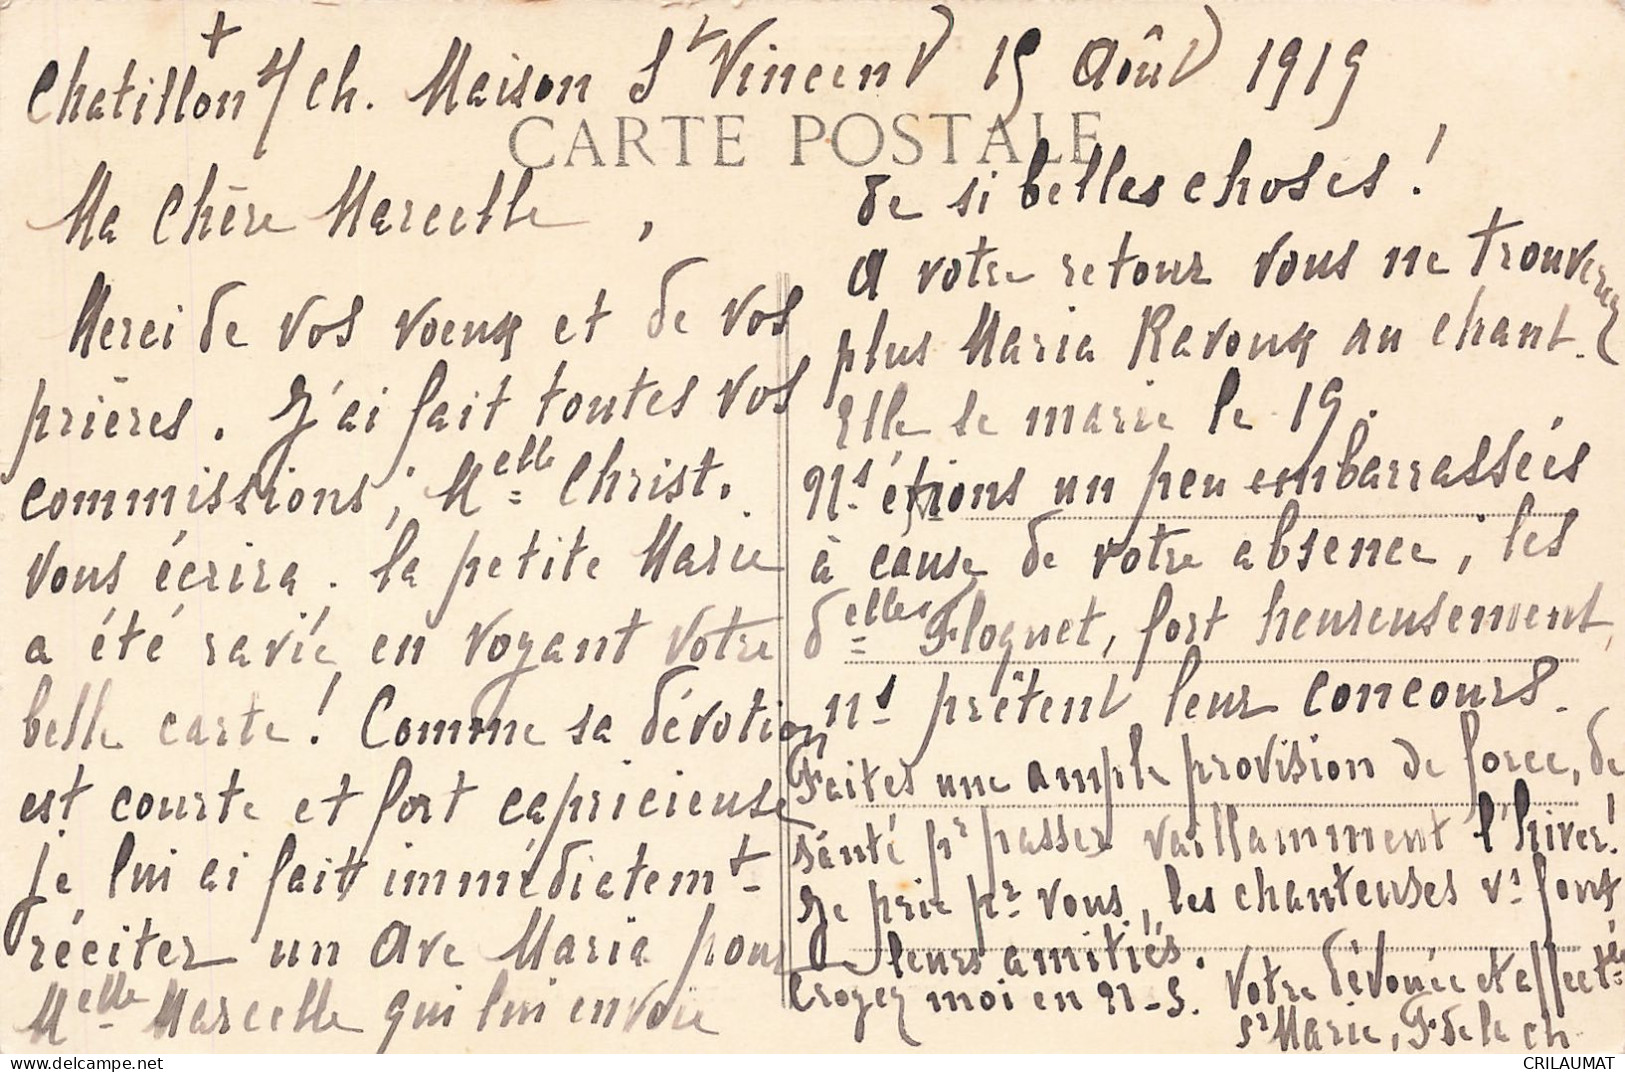 +
Chatillon s/ Ch. Maison St Vincent 15 Août 1919
CARTE POSTALE
Ma Chère Marcelle,
Merci de vos voeux et de vos
prières. J'ai fait toutes vos
commissions; Melle Christ.
vous écrira. La petite Marie
a été ravie en voyant votre
belle carte! Comme sa dévotion
est courte et fort capricieuse
je lui ai fait immédiatemt
réciter un Ave Maria pour
Melle Marcelle qui lui envoie
de si belles choses!
A votre retour vous ne trouverez
plus Maria Ravoux au chant.
Elle se marie le 19.
Ns étions un peu embarrassées
à cause de votre absence; les
delles Floquet, fort heureusement,
ns prêtent leur concours.
Faites une ample provision de force, de
santé pr passer vaillamment l'hiver!
Je prie pr vous, les chanteuses vs font
leurs amitiés.
Croyez moi en N-S. Votre dévouée et affectée
Sr Marie, F. de la Ch
CRILAUMAT